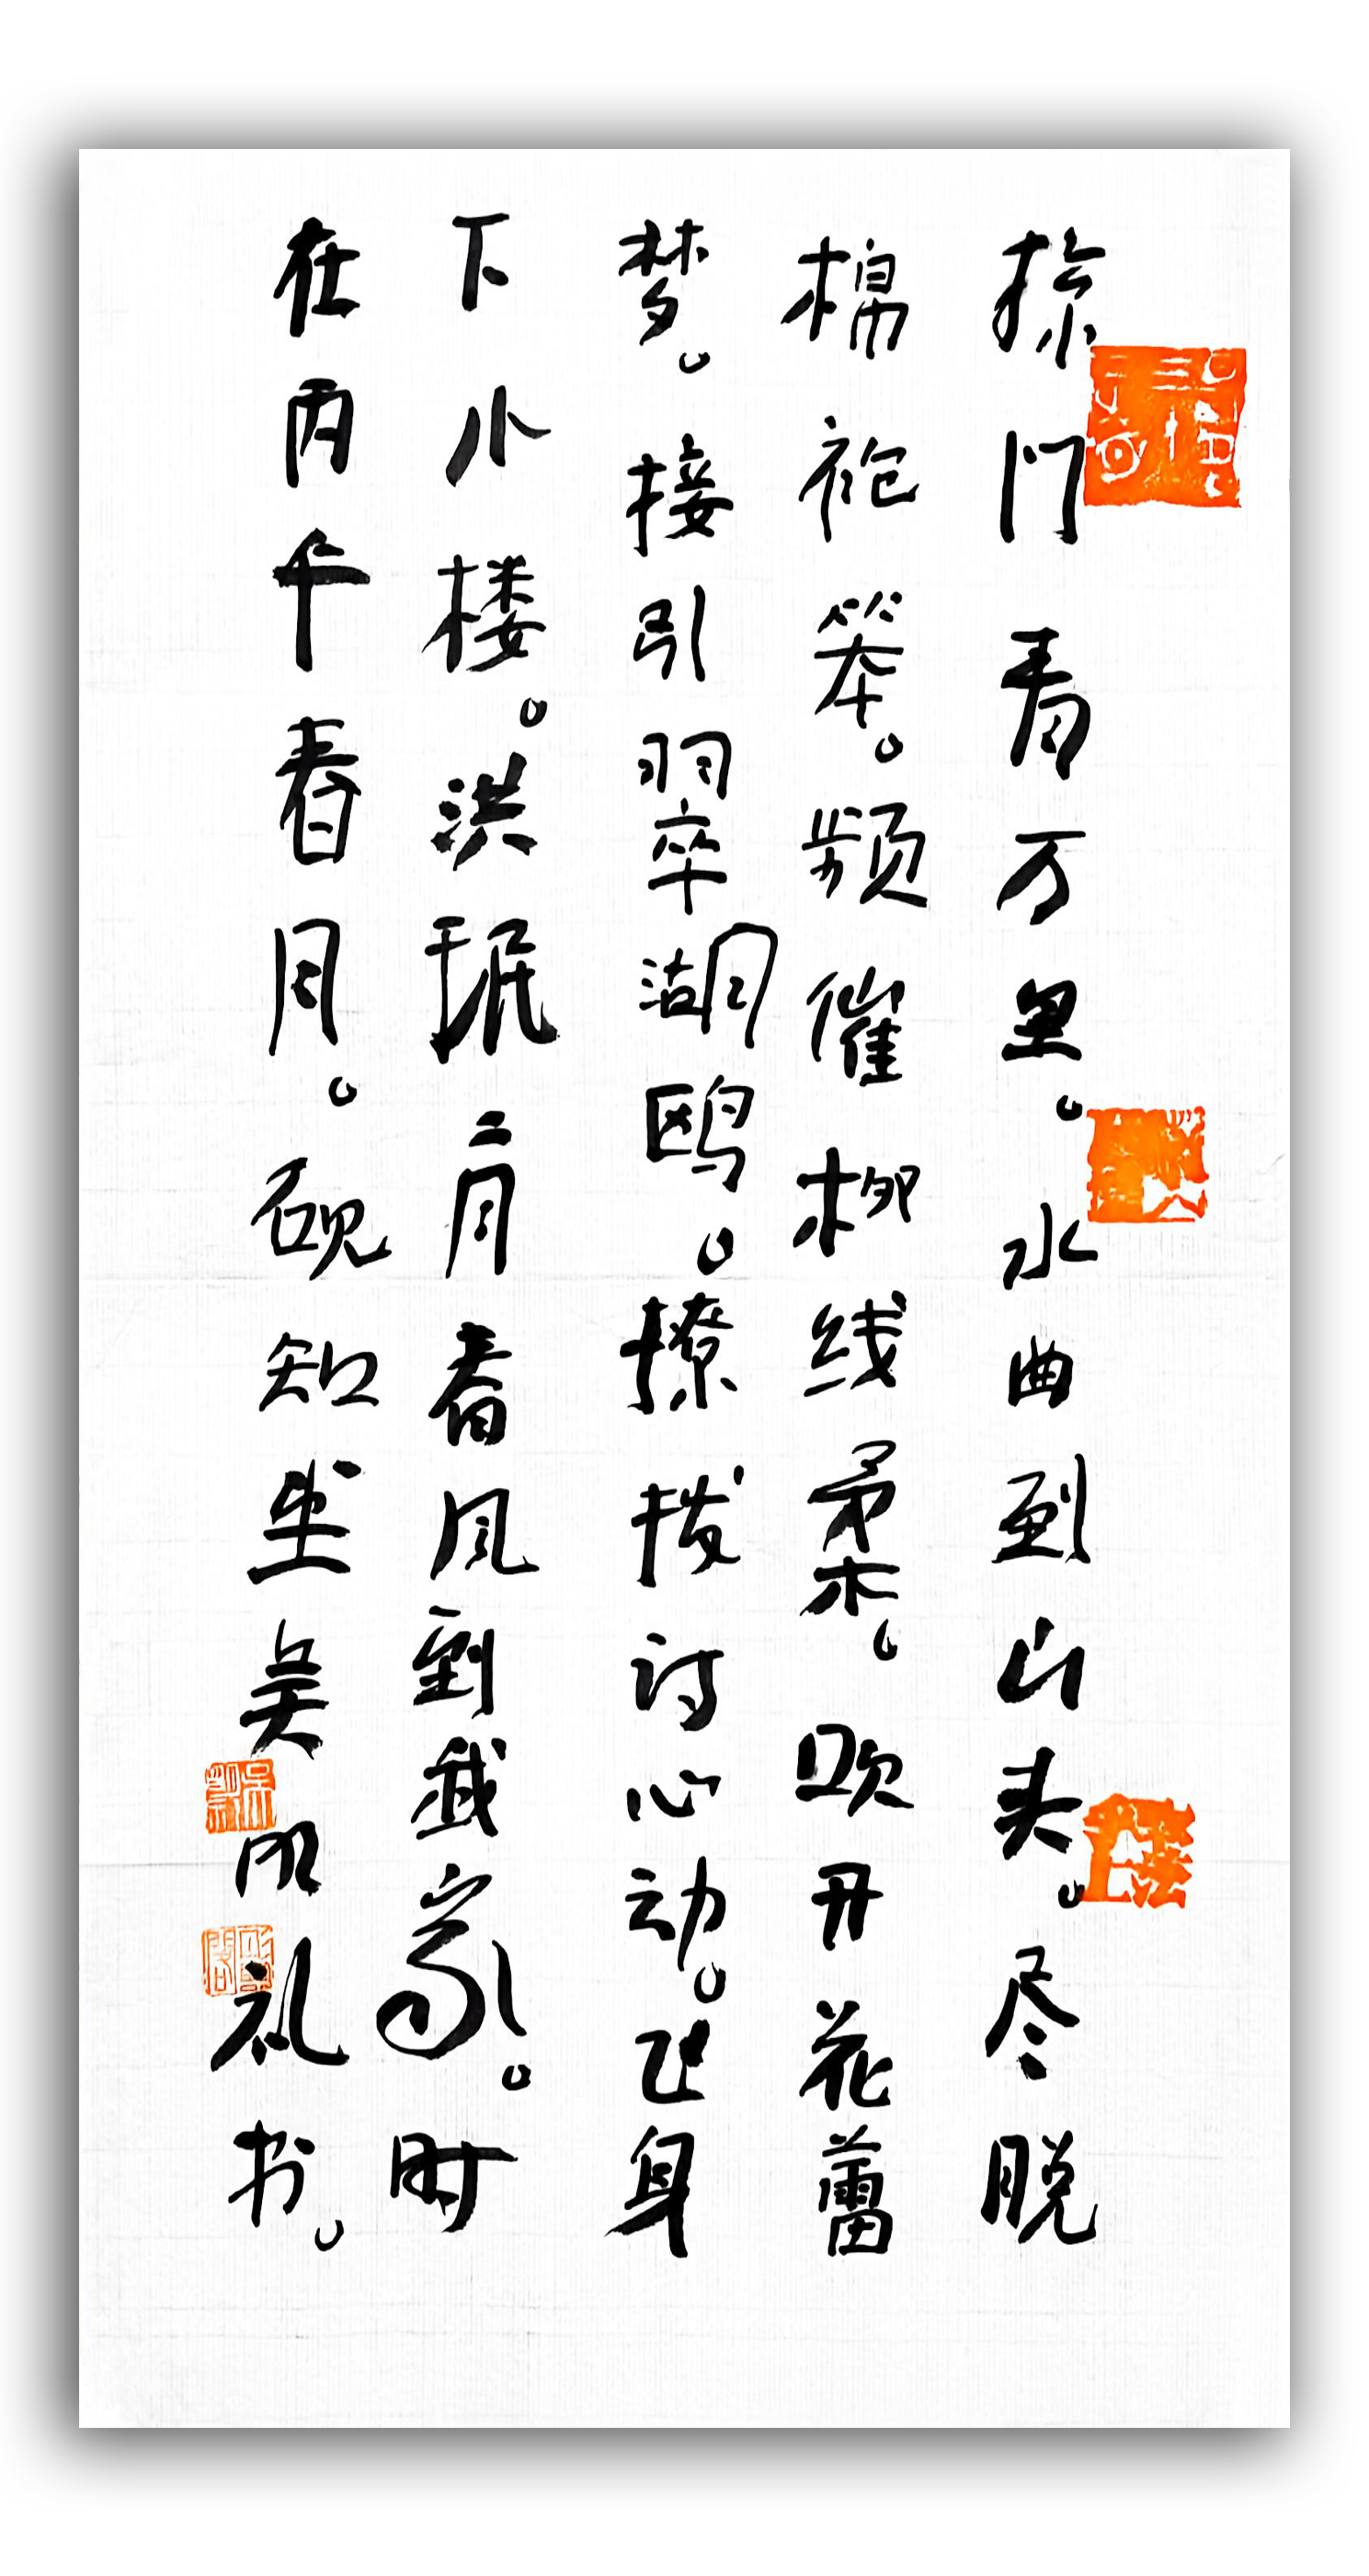 掠门青万里。水曲到山头。尽脱
棉袍笨。频催柳线柔。吹开花蕾
梦。接引翠湖鸥。撩拨诗心动。飞身
下小楼。洪珉二月春风到我家。时
在丙午春月。砚知坐吴明礼书。